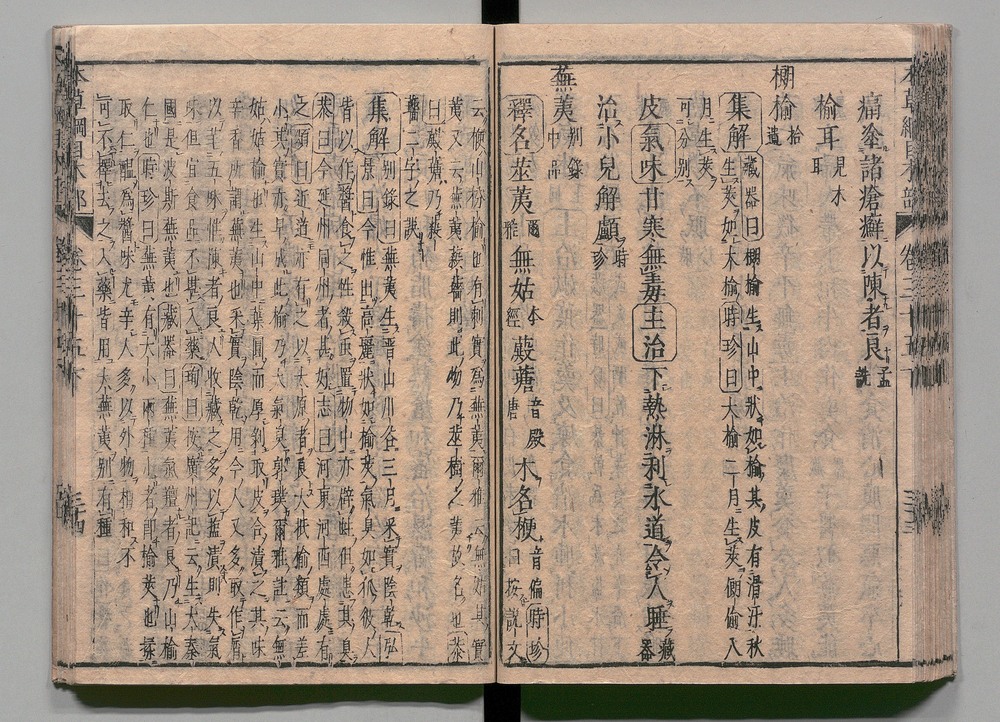 本草綱目木部 卷三十五下
痛塗諸瘡癬以陳者良孟詵
榆耳見木耳
榔榆拾遺
集解藏器曰榔榆生山中狀如榆其皮有滑汁秋
生莢如大榆時珍曰大榆二月生莢榔榆八
月生莢
可分別
皮氣味甘寒無毒主治下熱淋利水道令人睡藏器
治小兒解顱時珍
蕪荑別錄中品
釋名莁荑爾雅無姑本經蕆蓎音殿唐木名梗音偏時珍曰按說文
云梗山枌榆也有刺實爲蕪荑爾雅云無姑其實
荑又云蕪荑蔱蘠則此物乃莁樹之荑故名也恭
曰蕆蓎乃蔱
蘠二字之誤
集解別錄曰蕪荑生晉山川谷三月采實陰乾弘
景曰今惟出高麗狀如榆莢氣臭如犼彼人
皆以作醬食之性殺蟲置物中亦辟蛀但患其臭
恭曰今延州同州者甚好志曰河東河西處處有
之頌曰近道亦有之以太原者良大抵榆類而差
小其實亦早成此榆乃大氣臭郭璞爾雅註云無
姑姑榆也生山中葉圓而厚剝取皮合漬之其味
辛香所謂蕪荑也采實陰乾用今人又多取作屑
以芼五味惟陳者良人收藏之多以鹽漬則失氣
味但宜食品不堪入藥珣曰按廣州記云生大秦
國是波斯蕪荑也藏器曰蕪荑氣羶者良乃山榆
仁也時珍曰蕪荑有大小兩種小者卽榆莢也揉
取仁醞爲醬味尤辛人多以外物相和不
可不擇去之入藥皆用大蕪荑別有種
本草綱目木部 卷三十五下